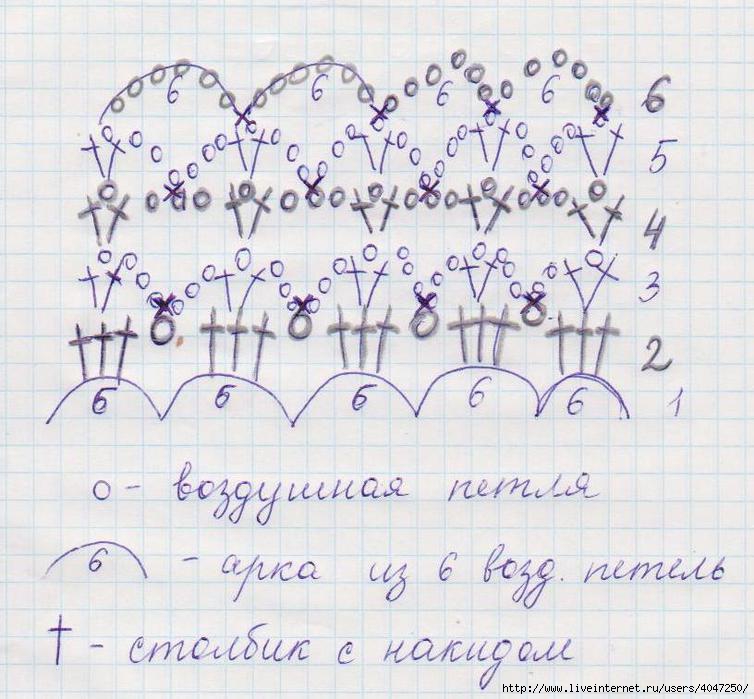 6 6 6 6 6
5
4
3
2
6 6 6 6 6 1
о - воздушная петля
6 - арка из 6 возд. петель
† - столбик с накидом
http://www.liveinternet.ru/users/4047250/